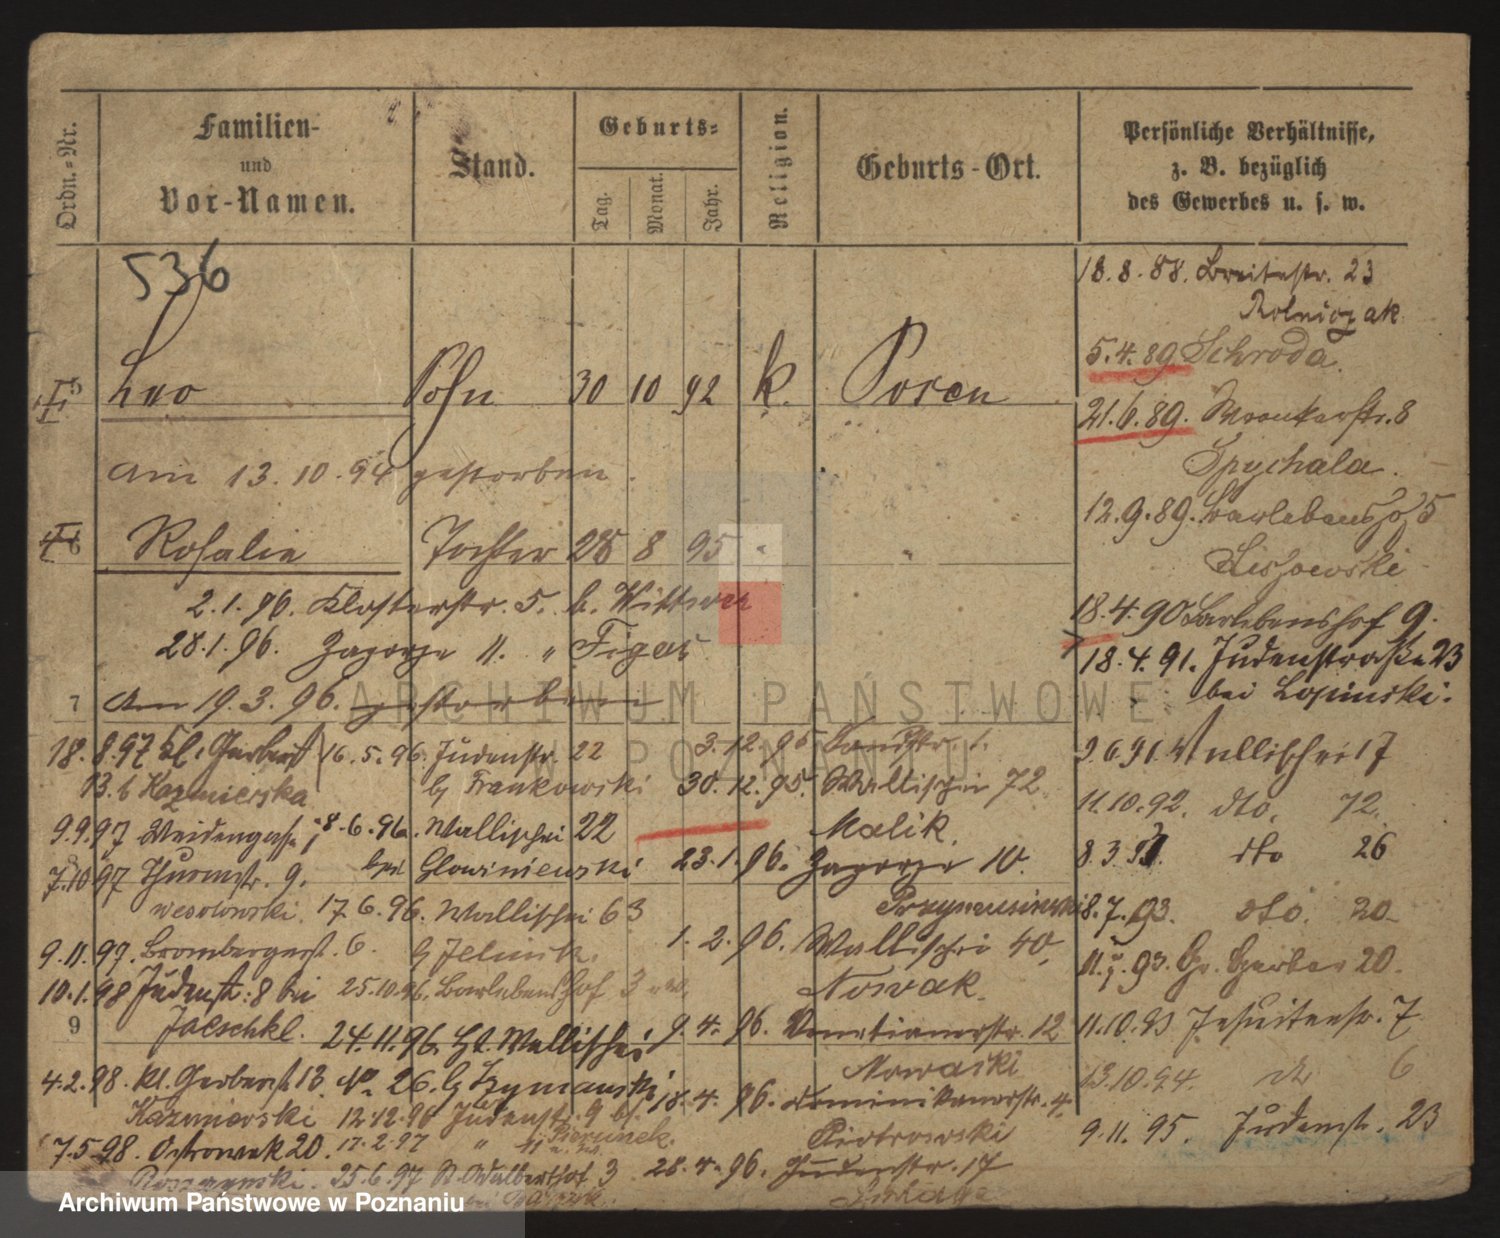 Ordn.-Nr.
Familien-
und
Vor-Namen.
Stand.
Geburts-
Tag.
Monat.
Jahr.
Religion.
Geburts-Ort.
Persönliche Verhältnisse,
z. B. bezüglich
des Gewerbes u. s. w.
536
Leo Sohn 30 10 92 k. Posen
am 13.10.94 gestorben.
Rosalie Tochter 28 8 95 " "
2.1.96. Klosterstr. 5. b.
28.1.96. Zagorze 11. " Figas
7 am 19.3.96. gestorben
18.8.97 Kl. Gerberst
13.b Kazmierska
9.9.97 Weidengasse
7.10.97 Thurmstr. 9.
Wesolowski.
9.11.97. Brombergerst. 6.
10.1.98 Judenstr. 8 bei
9 Jaeschke.
4.2.98. Kl. Gerberst 13
Kazmierski
7.5.98. Ostrowek 20.
16.5.96. Judenstr. 22
b. Frankowski
8.6.96. Wallischei 22
bei Glowiniewski
17.6.96. Wallischei 63
b. Jelinik.
25.10.96. Barlebenshof 3
24.11.96. Wallischei
No. 26. b Szymanski
12.12.96 Judenstr. 9
17.2.97 "
25.6.97 St. Adalberthof 3
3.12.95
30.12.95. Wallischei 72
Malik.
23.1.96. Zagorze 10.
1.2.96. Wallischei 40,
Nowak.
9.4.96. Venetianerstr. 12
Nowacki
18.4.96. Dominikanerstr. 4.
Piotrowski
28.4.96. Judenstr. 17
18.8.88. Breitestr. 23
Rolniczak
5.4.89 Schroda.
21.6.89. Wronkerstr. 8
Spychala.
12.9.89. Barlebenshof 5
Liszewski
18.4.90 Barlebenshof 9.
18.4.91. Judenstraße 23
bei Lopinski.
9.6.91. Wallischei 17
11.10.92. dto. 72.
8.3.93. dto 26
8.7.93. dto. 20
93. Gr. Gerber 20.
11.10.93 Jesuitenstr. 7
13.10.94. do 6
9.11.95. Judenstr. 23
ARCHIWUM PAŃSTWOWE
W POZNANIU
Archiwum Państwowe w Poznaniu